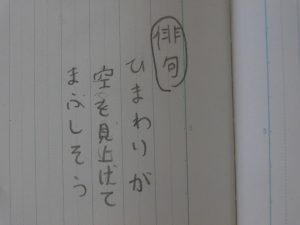 俳句
ひまわりが
空を見上げて
まぶしそう